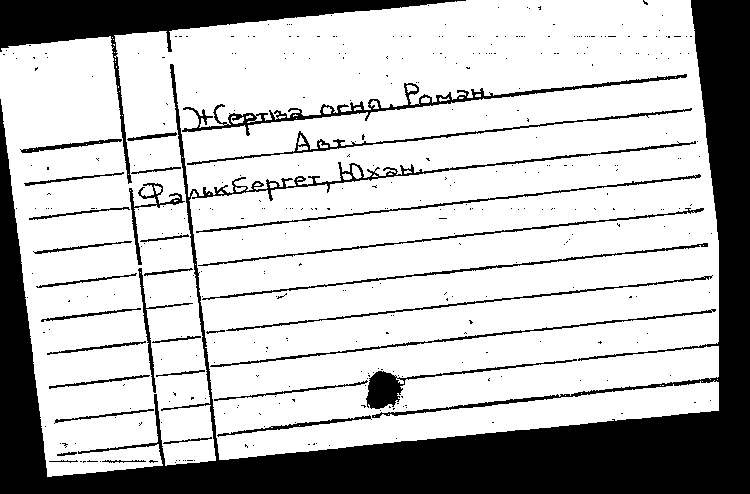 Жертва огня. Роман.
Авт.:
Фалькбергет, Юхан.